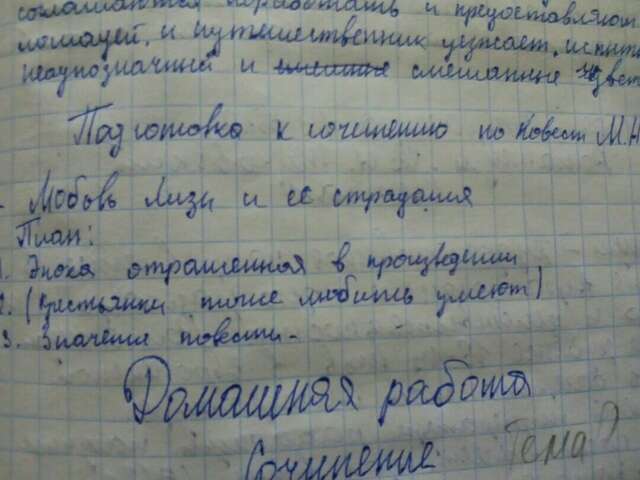 соглашаются поработать и предоставляют
лошадей, и путешественник уезжает, испыты
неоднозначный и смешанные чувст
Подготовка к сочинению по повест М.Н
- Любовь Лизы и её страдания
План:
1. Эпоха отраженная в произведении
2. (Крестьянки тоже любить умеют)
3. Значение повести-
Домашняя работа
Сочинение Тема?